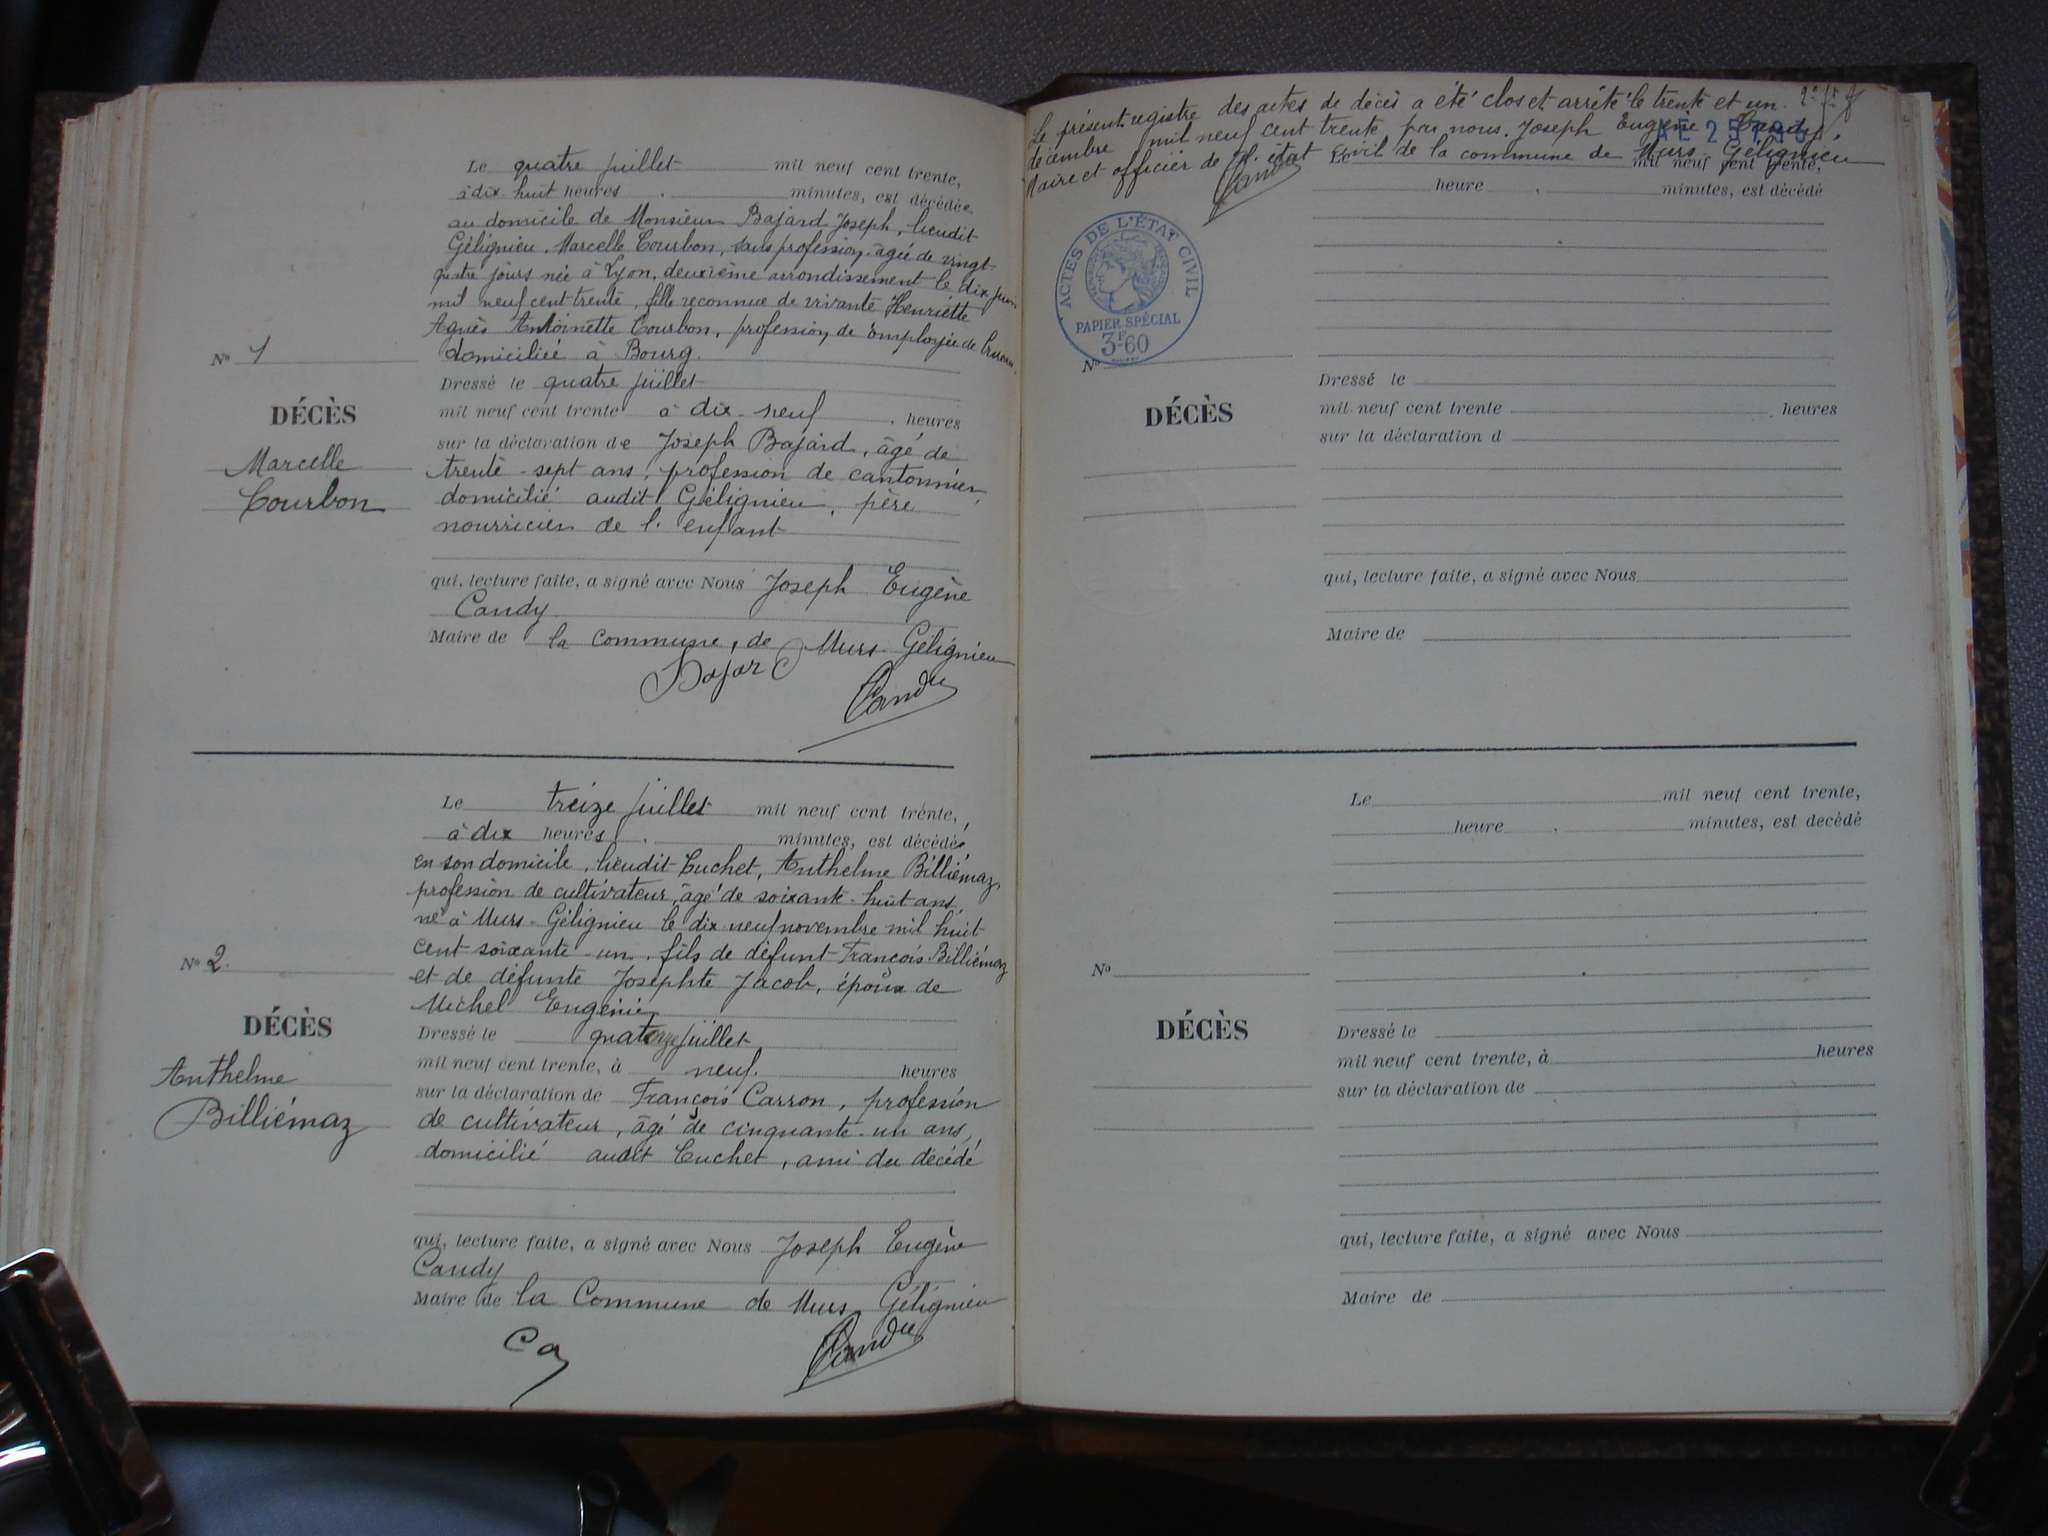 Le quatre juillet mil neuf cent trente,
à dix huit heures . minutes, est décédée
au domicile de Monsieur Bajard Joseph, lieudit
Gélignieu. Marcelle Courbon, sans profession, âgée de vingt-
quatre jours née à Lyon, deuxième arrondissement le dix juin
mil neuf cent trente, fille reconnue de vivante Henriette
Agnès Antoinette Courbon, profession de employée de bureau,
domiciliée à Bourg.
Nº 1
Dressé le quatre juillet
mil neuf cent trente à dix-neuf heures
DÉCÈS
sur la déclaration de Joseph Bajard, âgé de
Marcelle
trente-sept ans, profession de cantonnier,
Courbon
domicilié audit Gélignieu, père
nourricier de l'enfant
qui, lecture faite, a signé avec Nous Joseph Eugène
Candy
Maire de la commune, de Murs Gélignieu
Bajard
Candy
Le treize juillet mil neuf cent trente,
à dix heures . minutes, est décédé
en son domicile, lieudit Cuchet, Anthelme Billiémaz,
profession de cultivateur, âgé de soixante-huit ans,
né à Murs-Gélignieu le dix neuf novembre mil huit
cent soixante-un, fils de défunt François Billiémaz
Nº 2.
et de défunte Josephte Jacob, époux de
Michel Eugénie
DÉCÈS
Dressé le quatorze juillet
mil neuf cent trente, à neuf. heures
Anthelme
sur la déclaration de François Carron, profession
Billiémaz
de cultivateur, âgé de cinquante-un ans,
domicilié audit Cuchet, ami du décédé
qui, lecture faite, a signé avec Nous Joseph Eugène
Candy
Maire de la Commune de Murs Gélignieu
Ca
Candy
Le présent registre des actes de décès a été clos et arrêté le trente et un
décembre mil neuf cent trente par nous, Joseph Eugène Candy,
Maire et officier de l'état civil de la commune de Murs-Gélignieu
Candy
Le mil neuf cent trente,
heure . minutes, est décédé
ACTES DE L'ÉTAT CIVIL
PAPIER SPÉCIAL
3F60
Nº
Dressé le
mil neuf cent trente . heures
DÉCÈS
sur la déclaration d
qui, lecture faite, a signé avec Nous
Maire de
Le mil neuf cent trente,
heure . minutes, est decédé
Nº
DÉCÈS
Dressé le
mil neuf cent trente, à heures
sur la déclaration de
qui, lecture faite, a signé avec Nous
Maire de